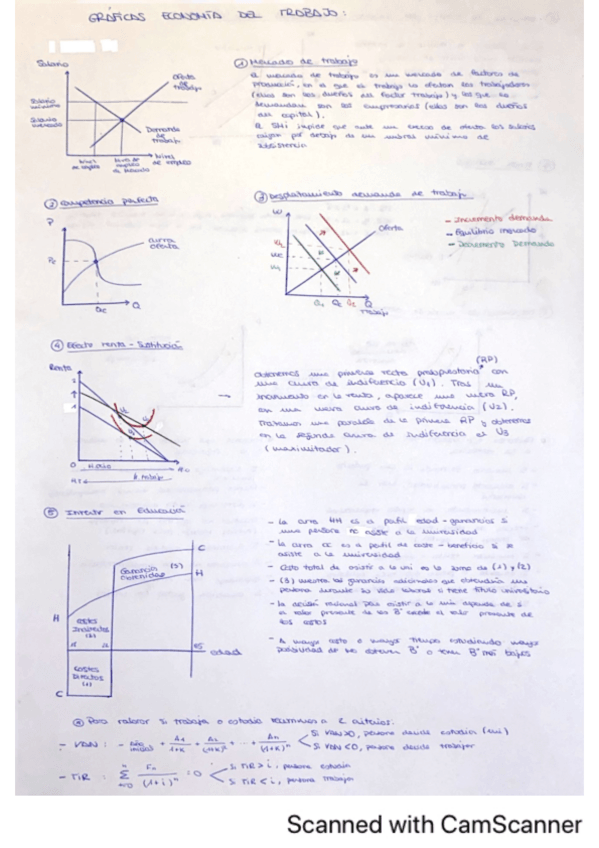 GRÁFICAS ECONOMÍA DEL TRABAJO:
Salario
Oferta
de
trabajo
Salario
mínimo
Salario
mercado
Demanda
de
trabajo
Nivel
de empleo
Nivel de
empleo
de mercado
Nivel
de empleo
① Mercado de trabajo
El mercado de trabajo es un mercado de factores de
producción, en el que el trabajo lo ofertan los trabajadores
(ellos son los dueños del factor trabajo) y los que lo
demandan son los empresarios (ellos son los dueños
del capital).
El SMI impide que ante un exceso de oferta los salarios
caigan por debajo de un umbral mínimo de
subsistencia
② Competencia perfecta
P
curva
oferta
Pe
Qe
Q
③ Desplazamiento demanda de trabajo
W
Oferta
Q
Trabajo
- Incremento demanda
- Equilibrio mercado
- Decremento Demanda
④ Efecto renta - Sustitución
Renta
0
H. ocio
H. trabajo
(RP)
Obtenemos una primera recta presupuestaria con
una curva de indiferencia (U₁). Tras un
incremento en la renta, aparece una nueva RP,
con una nueva curva de indiferencia (U2).
Trazamos una paralela de la primera RP y obtenemos
en la segunda curva de indiferencia el U3
(maximizador).
⑤ Invertir en Educación
C
H
Ganancia
Obtenidas
(3)
H
costes
Indirectos
(2)
18
22
65
edad
costes
Directos
(1)
C
- La curva HH es el perfil edad-ganancias si
una persona no asiste a la universidad
- La curva CC es el perfil de coste-beneficio si se
asiste a la universidad
- Coste total de asistir a la uni es la suma de (1) y (2)
- (3) muestra las ganancias adicionales que obtendría una
persona durante su vida laboral si tiene título universitario
- La decisión racional para asistir a la uni depende de si
el valor presente de los Bº excede el valor presente de
los costes
- A mayor coste o mayor tiempo estudiando mayor
posibilidad de no obtener Bº o tener Bº más bajos
Para valorar si trabaja o estudia recurrimos a 2 criterios:
- VAN: - inicial + A₁/1+K + A₂/(1+K)² + ... + An/(1+K)ⁿ
Si VAN>0, persona decide estudiar (uni)
Si VAN<0, persona decide trabajar
- TIR: Σ Fn/(1+i)ⁿ = 0
Si TIR > i, persona estudia
Si TIR < i, persona trabaja
Scanned with CamScanner